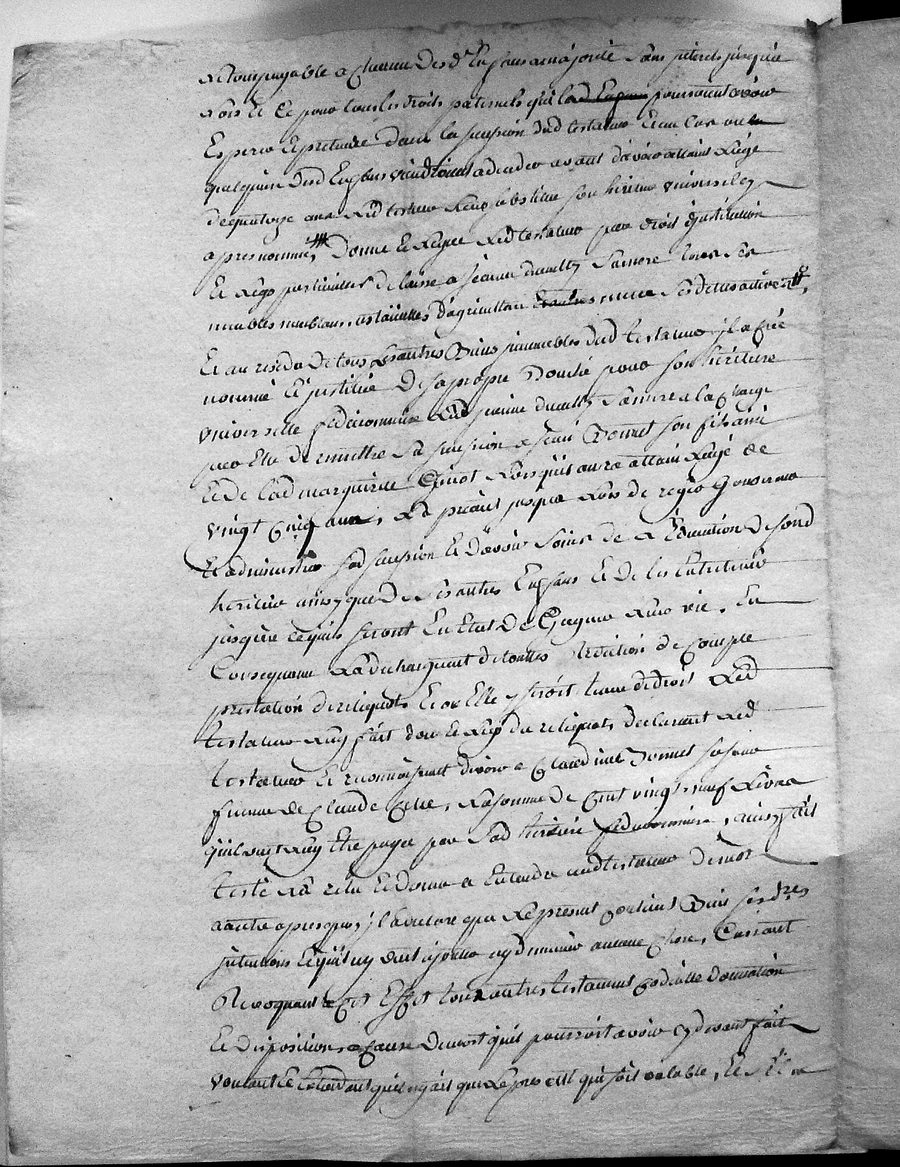 et tout payable a chacun desd. enfans a majorité sans interets jusques
alors et ce pour tous les droits paternels que lesd. pourroient avoir
esperer et pretendre dans la sucession dud testateur et au cas ou
quelqu'un desd Enfans viendroint a deceder avant d'avoir attaint l'age
de quatorze ans led testateur leur substitue son heritier universel cy
apres nommé, Donne et legue led testateur par droit d'institution
et legs particulier delaisse a jeanne sa mere tous ses
meubles meublans, d'agriculture ses dettes actives
Et au residu de tous les autres Biens jmmeubles dud testateur jl a créé
nommé et jnstitué de sa propre Bouche pour son heritiere
universelle fideicommise lad jeanne sa mere a la charge
par elle de remettre sa sucession a jean Bonnet son fils ainé
et de lad marguerite lorsqu'il aura attain l'age de
vingt cinq ans, la priant jusques alors de regir gouverner
et administrer sad sucession et d'avoir soins de l'Education de sond
heritier ainsy que de ses autres Enfans et de les Entretenir
jusques a ce qu'ils seront En Etat de Gagner leur vie, En
Consequence la dechargeant de touttes reddition de compte
prestation de reliquats et ou elle y seroit tenue de droit led
testateur luy fait don et legs du reliquats, declarant led
testateur et reconnoissant devoir a Claudine Bonnet sa soeur
femme de Claude la somme de Cent vingt neuf livres
qu'il veut luy etre payée par sad heritiere fideicommise, ainsy fait
testé lu relu et donné a Entendre aud testateur de mot
a autre apres quoy jl a declaré que le present contient Bien ses d.res
jntentions et qu'il ny veut ajouter ny diminuer aucune chose, Cassant
Revoquant a cet Effet tous autres testament Codicille donnation
et disposition a cause de mort qu'il pourroit avoir cy devant fait
voulant et Entendant qu'il n'y ait que le present qui soit valable,